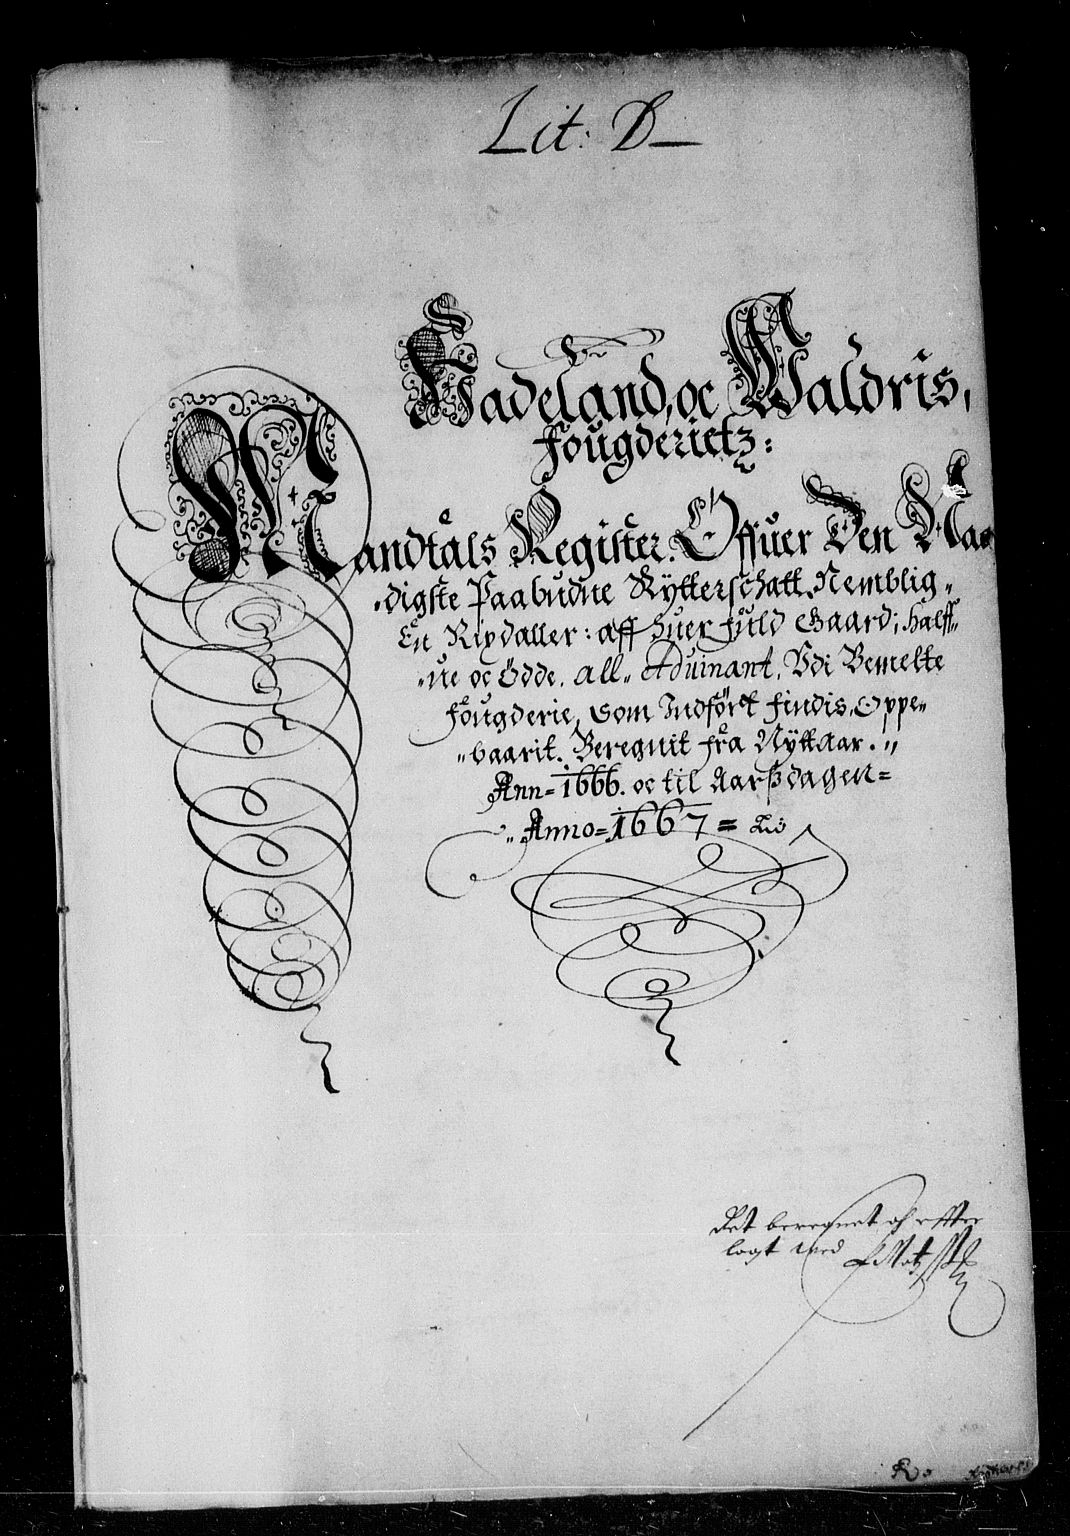 Lit: D
Hadeland, oc Waldris,
Fougderietz:
Mandtals Register. Offuer Den Naa
digste Paabudne Rytterschatt Nemblig
En Rixdaller: aff huer fuld Gaard; Halff
ue oc Ödde. all Aduinant. Vdi Bemelte
Fougderie, Som Indfört findis, Oppe
baarit. Beregnit fra Nyttaar.
Ann= 1666. oc til Aarsdagen=
Anno= 1667=
Ret beregnet och effter
lagt ved